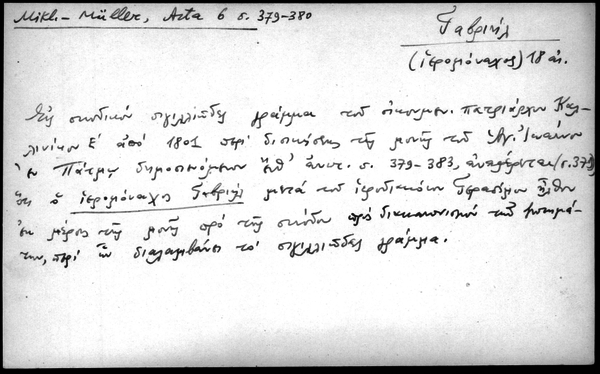 Mikl.-Müller, Acta 6 σ. 379-380
Γαβριήλ
(ἱερομόναχος) 18 αἰ.
Εἰς συνοδικὸν σιγιλλιῶδες γράμμα τοῦ οἰκουμεν. πατριάρχου Καλ-
λινίκου Ε΄ ἀπὸ 1801 περὶ διοικήσεως τῆς μονῆς τοῦ Ἁγ. Ἰωάννου
ἐν Πάτμῳ δημοσιευόμενον ἔνθ' ἀνωτ. σ. 379-383, ἀναφέρεται (σ. 379)
ὅτι ὁ ἱερομόναχος Γαβριὴλ μετὰ τοῦ ἱεροδιακόνου Γερασίμου ἦλθον
ἐκ μέρους τῆς μονῆς πρὸ τῆς συνόδου πρὸ διακανονισμοῦ τῶν
των, περὶ ὧν διαλαμβάνει τὸ σιγιλλιῶδες γράμμα.